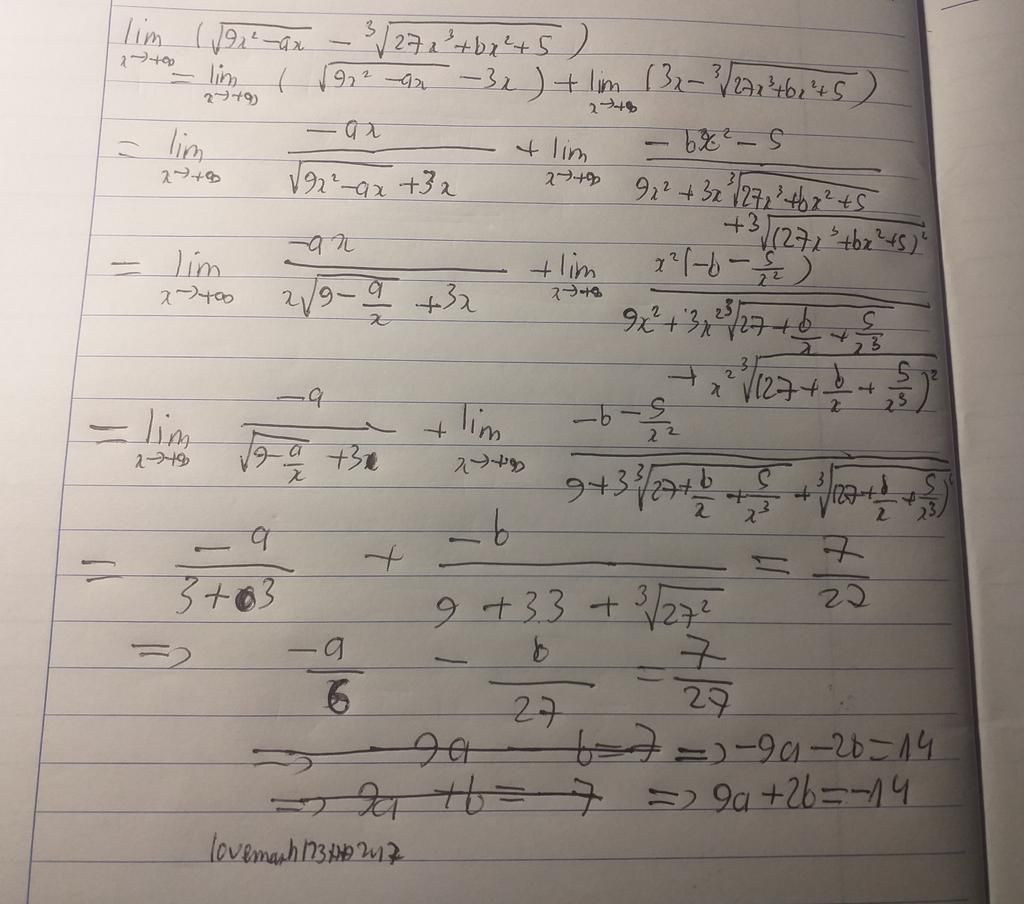 lim x→+∞ (√(9x²-ax) - ∛(27x³+bx²+5))
= lim x→+∞ (√(9x²-ax) - 3x) + lim x→+∞ (3x - ∛(27x³+bx²+5))
= lim x→+∞ (-ax)/(√(9x²-ax) + 3x) + lim x→+∞ (-bx² - 5)/(9x² + 3x∛(27x³+bx²+5) + ∛((27x³+bx²+5)²))
= lim x→+∞ (-ax)/(x√(9 - a/x) + 3x) + lim x→+∞ (x²(-b - 5/x²))/(9x² + 3x²∛(27 + b/x + 5/x³) + x²∛((27 + b/x + 5/x³)²))
= lim x→+∞ (-a)/(√(9 - a/x) + 3) + lim x→+∞ (-b - 5/x²)/(9 + 3∛(27 + b/x + 5/x³) + ∛((27 + b/x + 5/x³)²))
= (-a)/(3+3) + (-b)/(9 + 3.3 + ∛(27²)) = 7/27
=> -a/6 - b/27 = 7/27
=> -9a - b = 7 => -9a - 2b = 14
=> 9a + b = -7 => 9a + 2b = -14